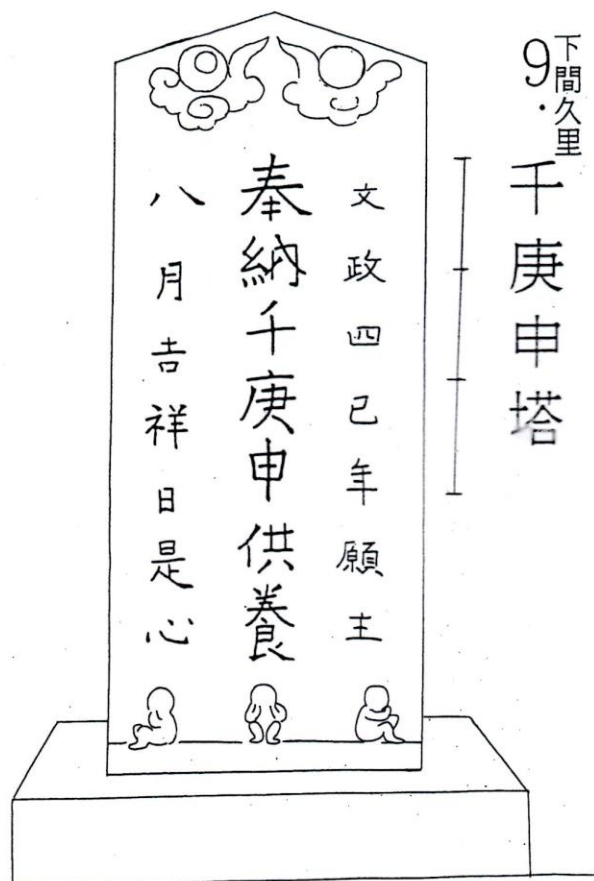 下間久里
9.
千庚申塔
文政四巳年願主
奉納千庚申供養
八月吉祥日是心